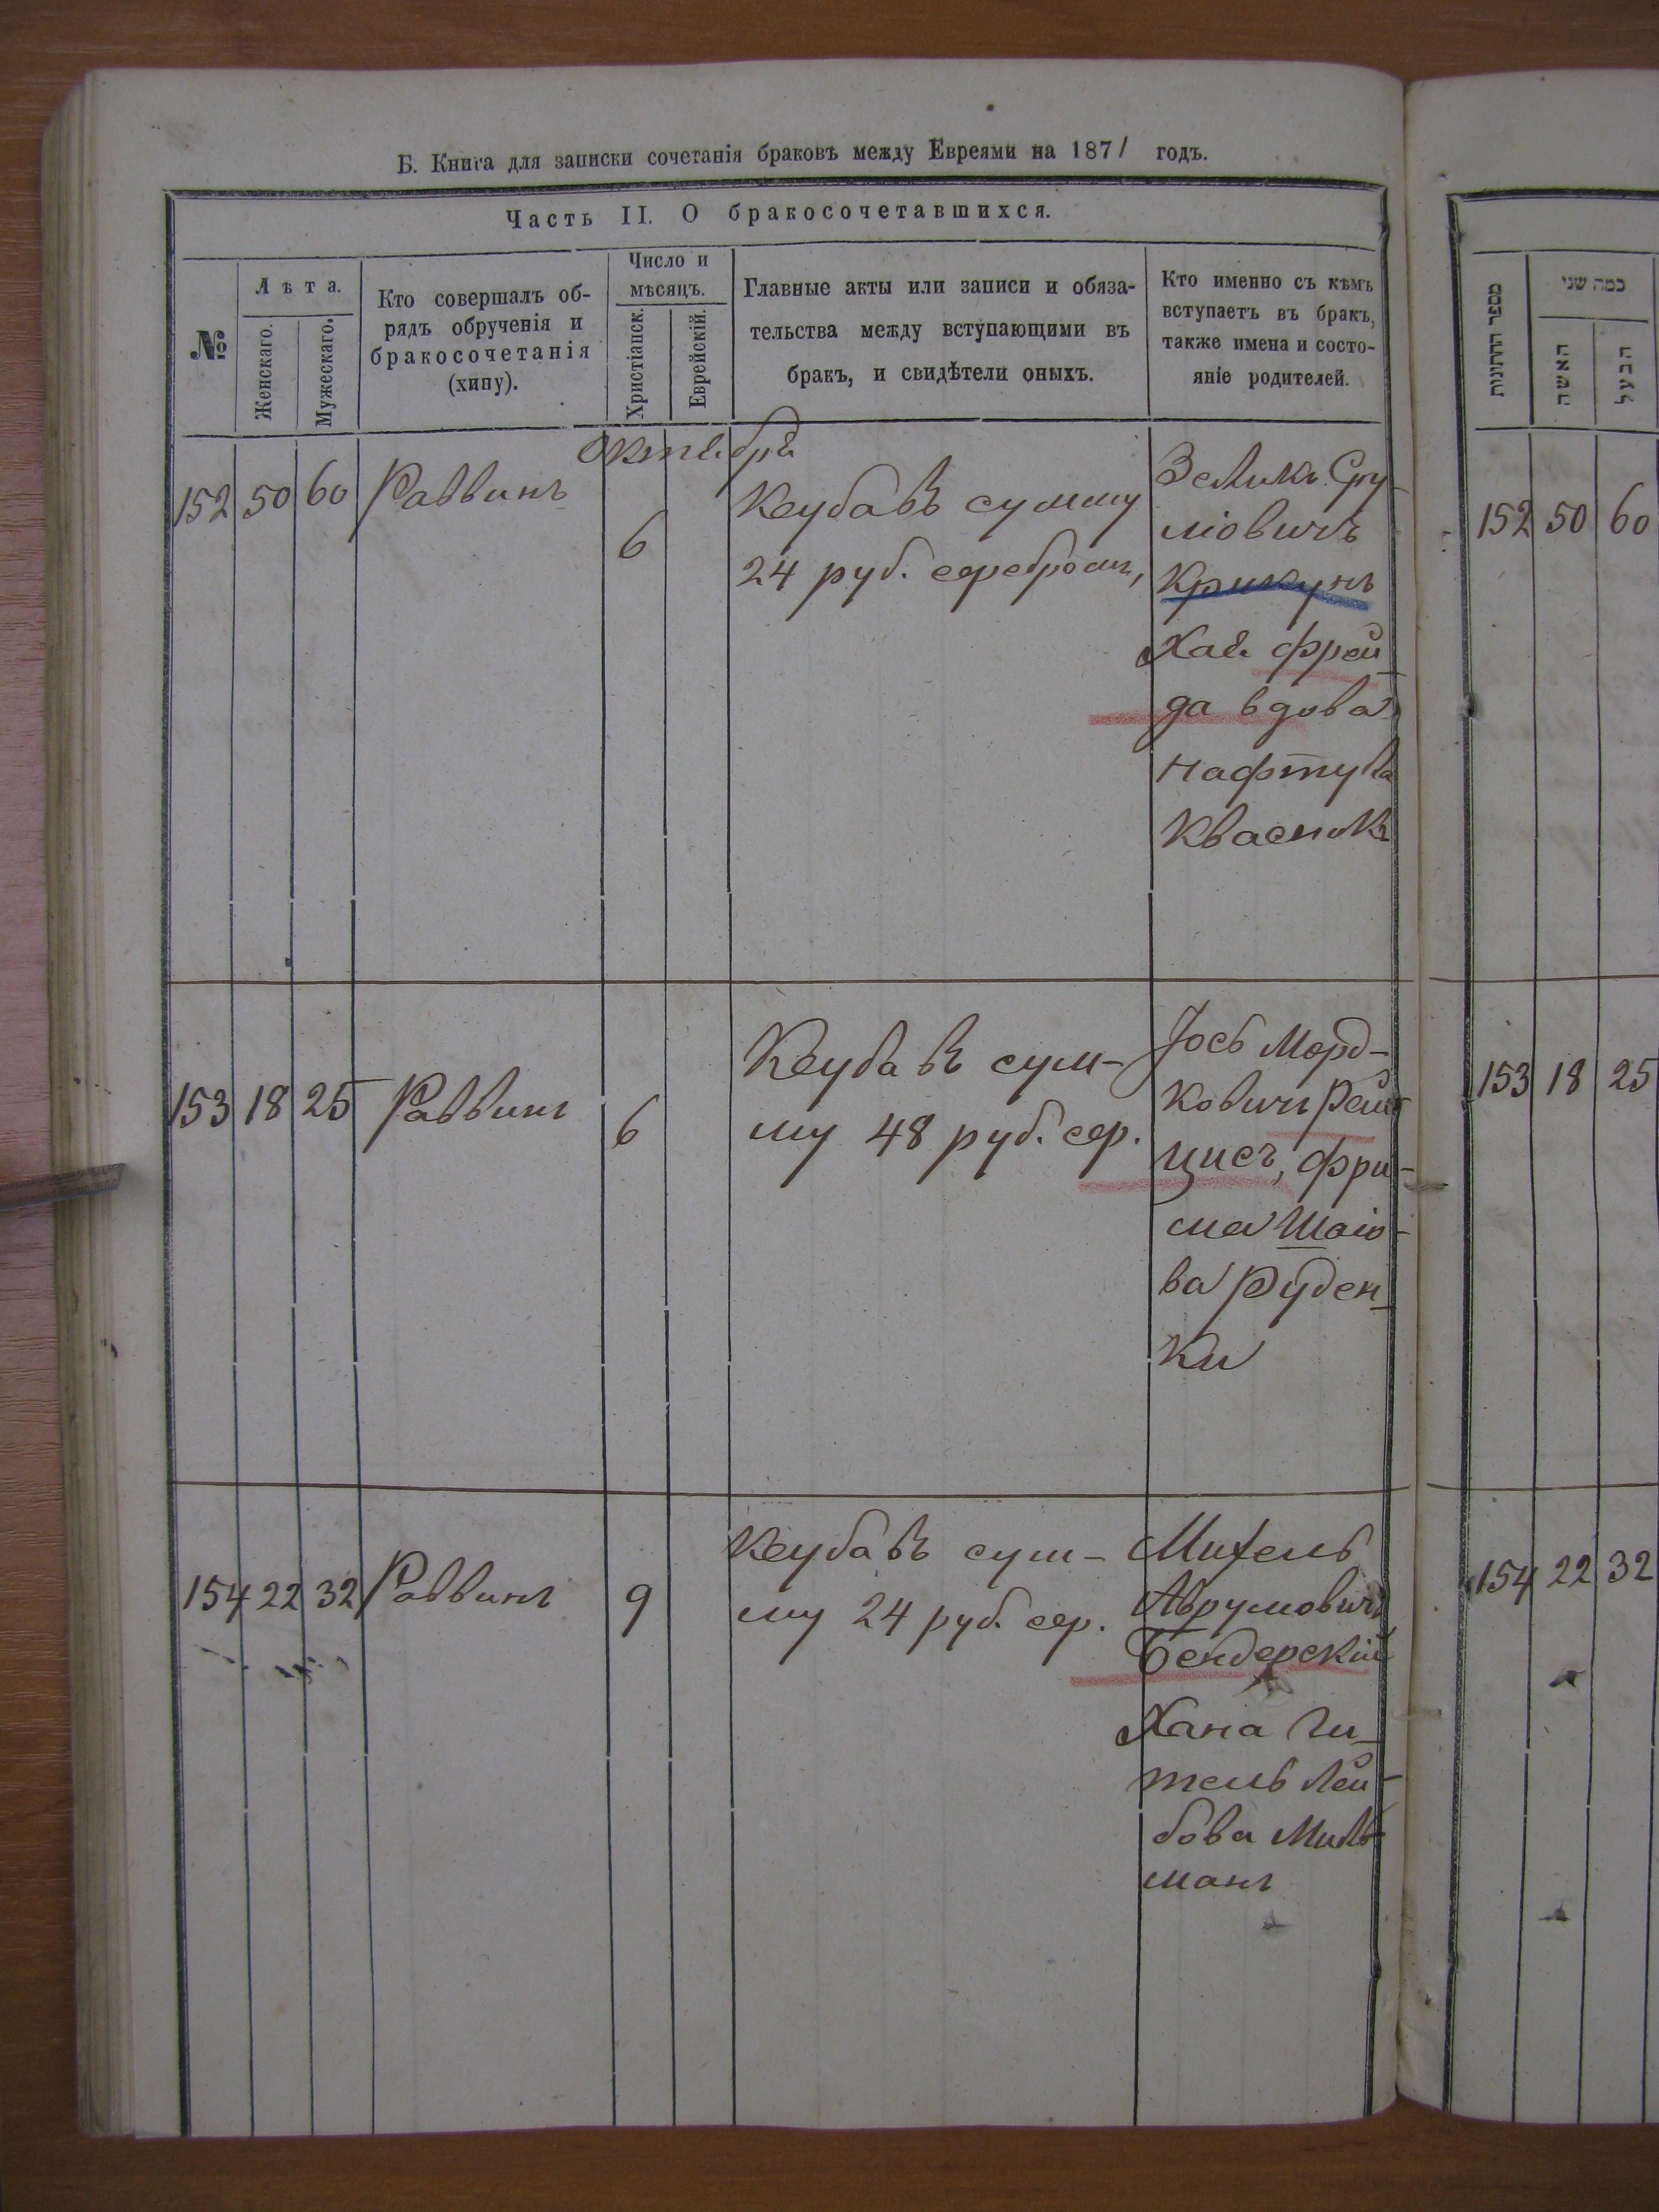 Б. Книга для записки сочетанія браковъ между Евреями на 1871 годъ.
Часть II. О бракосочетавшихся.
№
Лѣта.
Женскаго.
Мужескаго.
Кто совершалъ об-
рядъ обрученія и
бракосочетанія
(хипу).
Число и
мѣсяцъ.
Христіанск.
Еврейскій.
Главные акты или записи и обяза-
тельства между вступающими въ
бракъ, и свидѣтели оныхъ.
Кто именно съ кѣмъ
вступаетъ въ бракъ,
также имена и состо-
яніе родителей.
Октября
152 50 60 Раввинъ
6
Кеуба въ сумму
24 руб. серебромъ,
Зеликъ Сру-
ліовичъ
Крикунъ
Хая Фрей-
да вдова
Нафтула
Квасникъ
153 18 25 Раввинъ
6
Кеуба въ сум-
му 48 руб. сер.
Іось Морд-
ковичъ Рей-
цисъ, Фри-
ма Шаіо-
ва Руден-
ки
154 22 32 Раввинъ
9
Кеуба въ сум-
му 24 руб. сер.
Михель
Аврумовичъ
Бендерскій
Хана Ги-
тель Лей-
бова Миль-
манъ
מספר החתונות
כמה שני
האשה
הבעל
152 50 60
153 18 25
154 22 32